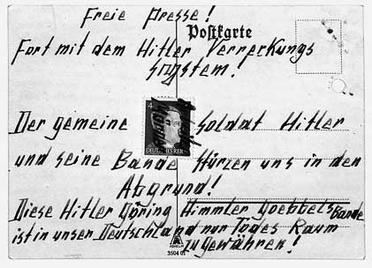 Freie Presse!
Postkarte
Fort mit dem Hitler Verrerkungs
System!
4
DEUTSCHES REICH
Der gemeine Soldat Hitler
und seine Bande Stürzen uns in den
Abgrund!
Diese Hitler Göring Himmler Goebbels Bande
ist in unser Deutschland nur Todes Raum
zu gewähren!